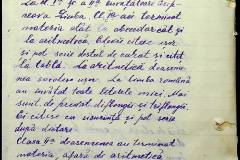 La Cl. I-a și a II-a învățătoare
Limba. Cl. I-a au terminat
materia atât la abecedar cât și
la aritmetică. Elevii citesc ușor
și pot scrie destul de calit și citit
la tablă. La aritmetică deasemenea
socotesc ușor. La limba română
au învățat toate literele mici. Mai
sunt de predat diftongii și triftongii.
Ei citesc cu ușurință și pot scrie
după dictare.
Clasa II-a deasemenea au terminat
materia, afară de aritmetică